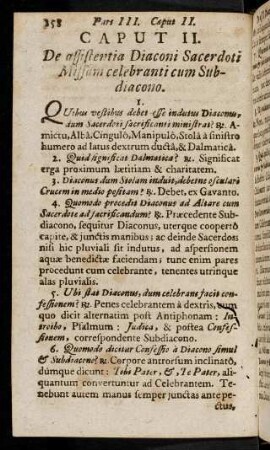 358 Pars III. Caput II.
CAPUT II.
De assistentia Diaconi Sacerdoti
Missam celebranti cum Sub-
diacono.
1.
QUibus vestibus debet esse indutus Diaconus,
dum Sacerdoti sacrificanti ministrat? ℞. A-
mictu, Albâ, Cingulô, Manipulô, Stolâ à sinistro
humero ad latus dextrum ductâ, & Dalmaticâ.
2. Quid significat Dalmatica? ℞. Significat
erga proximum lætitiam & charitatem.
3. Diaconus dum Stolam induit, debetne osculari
Crucem in medio positam? ℞. Debet, ex Gavanto.
4. Quomodo procedit Diaconus ad Altare cum
Sacerdote ad sacrificandum? ℞. Præcedente Sub-
diacono, sequitur Diaconus, uterque coopertô
capite, & junctis manibus; ac deinde Sacerdos
nisi hic pluviali sit indutus, ad aspersionem
aquæ benedictæ faciendam; tunc enim pares
procedunt cum celebrante, tenentes utrinque
alas pluvialis.
5. Ubi stat Diaconus, dum celebrans facit con-
fessionem? ℞. Penes celebrantem à dextris, cum
quo dicit alternatim post Antiphonam: In-
troibo, Psalmum: Judica, & postea Confes-
sionem, correspondente Subdiacono.
6. Quomodo dicitur Confessio à Diacono simul
& Subdiacono? ℞. Corpore antrorsum inclinatô,
dúmque dicunt: Tibi Pater, &, Te Pater, ali-
quantum convertuntur ad Celebrantem. Te-
nebunt autem manus semper junctas ante pe-
ctus,